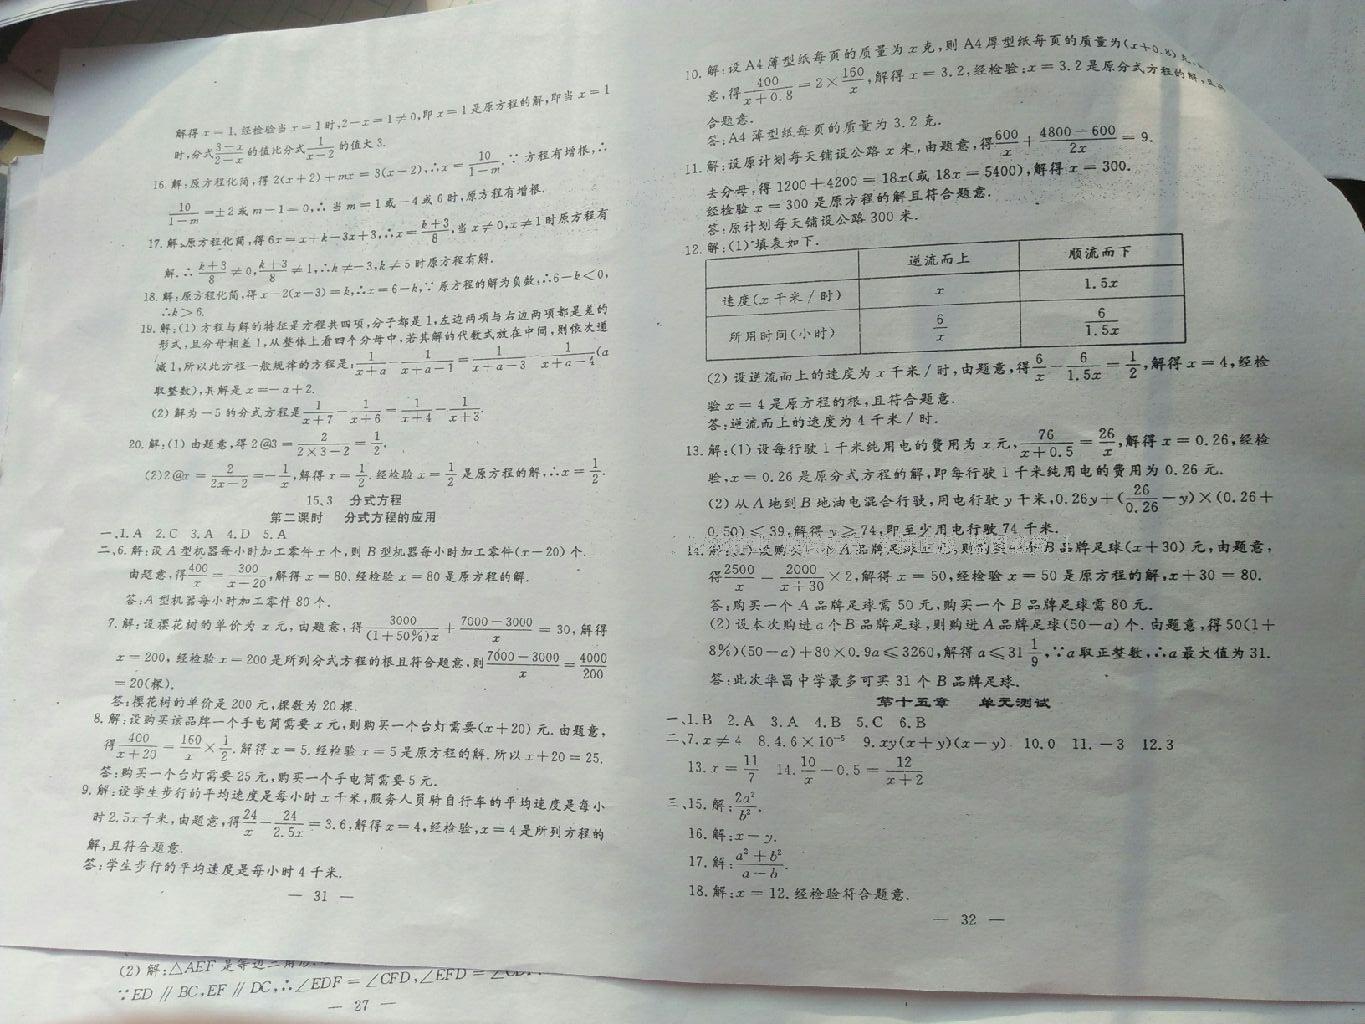 解得x=1.经检验当x=1时,2-x=1≠0,即x=1是原方程的解,即当x=1
时,分式(3-x)/(2-x)的值比分式1/(x-2)的值大3.
16.解:原方程化简,得2(x+2)+mx=3(x-2),∴x=10/(1-m).∵方程有增根,∴
10/(1-m)=±2或m-1=0,∴当m=1或-4或6时,原方程有增根.
17.解:原方程化简,得6x=x+k-3x+3,∴x=(k+3)/8.当x≠0,x≠1时原方程有
解.∴(k+3)/8≠0,(k+3)/8≠1,∴k≠-3,k≠5时原方程有解.
18.解:原方程化简,得x-2(x-3)=k,∴x=6-k,∵原方程的解为负数,∴6-k<0,
∴k>6.
19.解:(1)方程与解的特征是方程共四项,分子都是1,左边两项与右边两项都是差的
形式,且分母相差1,从整体上看四个分母中,若其解的代数式放在中间,则依次递
减1,所以此方程一般规律的方程是:1/(x+a)-1/(x+a-1)=1/(x+a-3)-1/(x+a-4)(a
取整数),其解是x=-a+2.
(2)解为-5的分式方程是1/(x+7)-1/(x+6)=1/(x+4)-1/(x+3).
20.解:(1)由题意,得2@3=2/(2×3-2)=1/2.
(2)2@x=2/(2x-2)=-1/x,解得x=1/2.经检验x=1/2是原方程的解,∴x=1/2.
15.3 分式方程
第二课时 分式方程的应用
一、1.A 2.C 3.A 4.D 5.A
二、6.解:设A型机器每小时加工零件x个,则B型机器每小时加工零件(x-20)个.
由题意,得400/x=300/(x-20),解得x=80.经检验x=80是原方程的解.
答:A型机器每小时加工零件80个.
7.解:设樱花树的单价为x元,由题意,得3000/((1+50%)x)+(7000-3000)/x=30,解得
x=200,经检验x=200是所列分式方程的根且符合题意,则(7000-3000)/x=4000/200
=20(棵).
答:樱花树的单价是200元,棵数为20棵.
8.解:设购买该品牌一个手电筒需要x元,则购买一个台灯需要(x+20)元.由题意,
得400/(x+20)=160/x×1/2.解得x=5.经检验x=5是原方程的解.所以x+20=25.
答:购买一个台灯需要25元,购买一个手电筒需要5元.
9.解:设学生步行的平均速度是每小时x千米,服务人员骑自行车的平均速度是每小
时2.5x千米,由题意,得24/x-24/2.5x=3.6,解得x=4,经检验,x=4是所列方程的
解,且符合题意.
答:学生步行的平均速度是每小时4千米.
— 31 —
10.解:设A4薄型纸每页的质量为x克,则A4厚型纸每页的质量为(x+0.8)
意,得400/(x+0.8)=2×160/x,解得x=3.2,经检验:x=3.2是原分式方程的解,且
合题意.
答:A4薄型纸每页的质量为3.2克.
11.解:设原计划每天铺设公路x米,由题意,得600/x+(4800-600)/2x=9.
去分母,得1200+4200=18x(或18x=5400),解得x=300.
经检验x=300是原方程的解且符合题意.
答:原计划每天铺设公路300米.
12.解:(1)填表如下.
逆流而上 顺流而下
速度(x千米/时) x 1.5x
所用时间(小时) 6/x 6/1.5x
(2)设逆流而上的速度为x千米/时,由题意,得6/x-6/1.5x=1/2,解得x=4,经检
验x=4是原方程的根,且符合题意.
答:逆流而上的速度为4千米/时.
13.解:(1)设每行驶1千米纯用电的费用为x元,76/(x+0.5)=26/x,解得x=0.26,经检
验,x=0.26是原分式方程的解,即每行驶1千米纯用电的费用为0.26元.
(2)从A地到B地油电混合行驶,用电行驶y千米,0.26y+(26/0.26-y)×(0.26+
0.50)≤39,解得y≥74,即至少用电行驶74千米.
14. A品牌足球 B品牌足球(x+30)元,由题意,
得2500/x=2000/(x+30)×2,解得x=50,经检验x=50是原方程的解,x+30=80.
答:购买一个A品牌足球需50元,购买一个B品牌足球需80元.
(2)设本次购进a个B品牌足球,则购进A品牌足球(50-a)个.由题意,得50(1+
8%)(50-a)+80×0.9a≤3260,解得a≤31 1/9,∵a取正整数,∴a最大值为31.
答:此次华昌中学最多可买31个B品牌足球.
第十五章 单元测试
一、1.B 2.A 3.A 4.B 5.C 6.B
二、7.x≠4 8.4.6×10⁻⁵ 9.xy(x+y)(x-y) 10.0 11.-3 12.3
13.x=11/7 14.10/x-0.5=12/(x+2)
三、15.解:2a²/b².
16.解:x-y.
17.解:(a²+b²)/(a-b).
18.解:x=12.经检验符合题意.
— 32 —
(2)解:△AEF是等边三角形.
∵ED∥BC,EF∥DC,∴∠EDF=∠CFD,∠EFD=
— 27 —